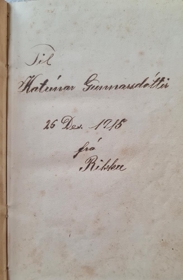 Til
Katrínar Gunnarsdóttir
26 Des. 1918
frá
Rikke